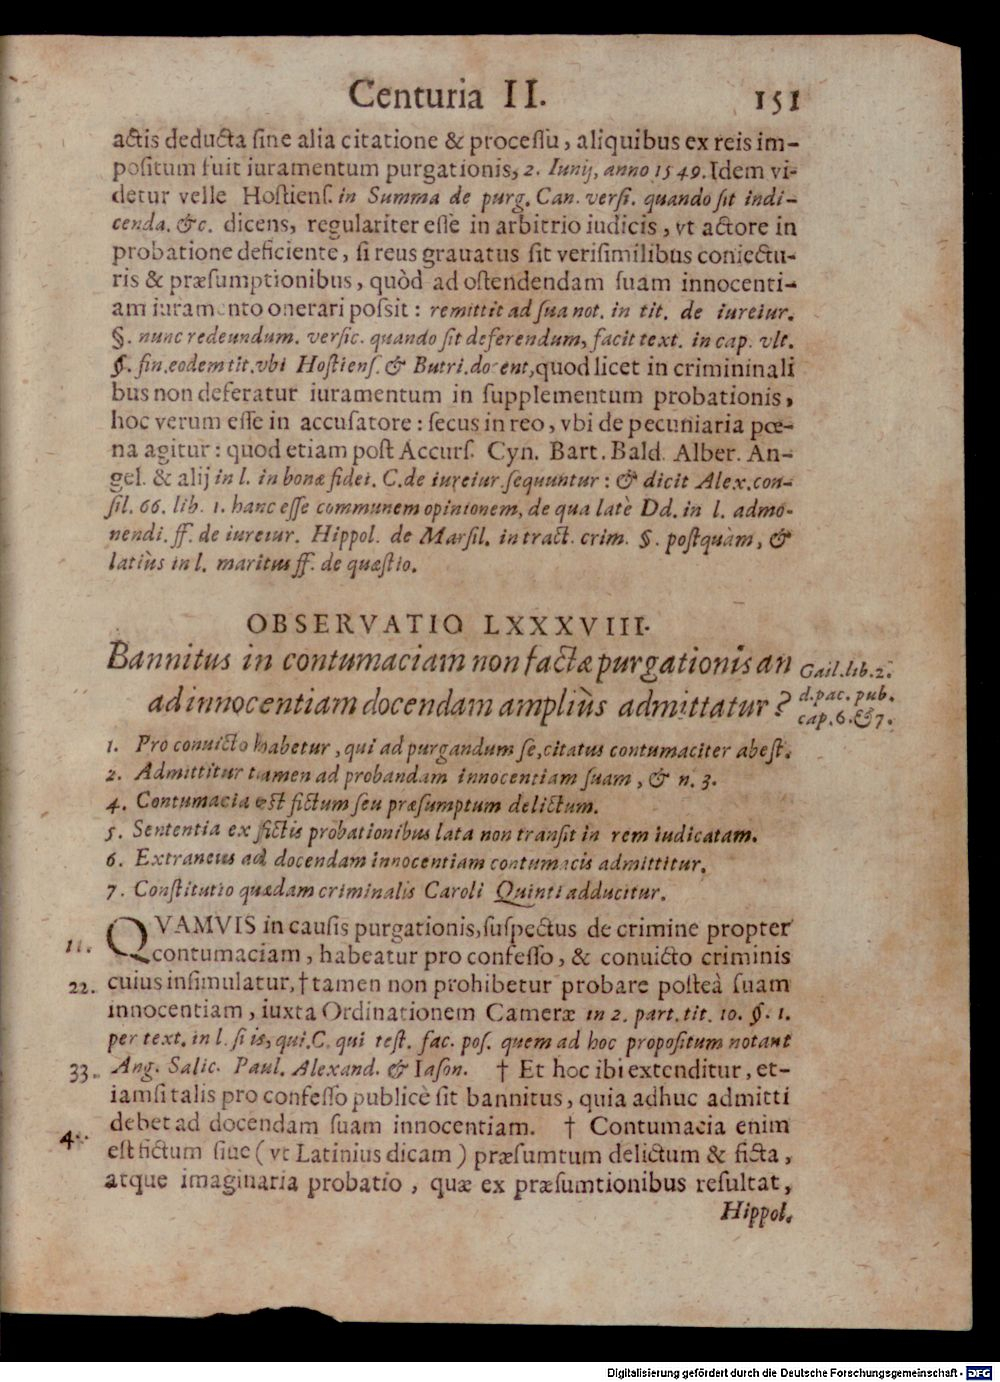 Centuria II. 151
actis deducta ſine alia citatione & proceſſu, aliquibus ex reis im-
poſitum fuit iuramentum purgationis, 2. Iunij, anno 1549. Idem vi-
detur velle Hoſtienſ. in Summa de purg. Can. verſi. quando ſit indi-
cenda. &c. dicens, regulariter eſſe in arbitrio iudicis, vt actore in
probatione deficiente, ſi reus grauatus ſit veriſimilibus coniectu-
ris & præſumptionibus, quòd ad oſtendendam ſuam innocenti-
am iuramento onerari poſsit: remittit ad ſua not. in tit. de iureiur.
§. nunc redeundum. verſic. quando ſit deferendum, facit text. in cap. vlt.
§. fin. eodem tit. vbi Hoſtienſ. & Butri. docent, quod licet in crimininali
bus non deferatur iuramentum in ſupplementum probationis,
hoc verum eſſe in accuſatore: ſecus in reo, vbi de pecuniaria pœ-
na agitur: quod etiam poſt Accurſ. Cyn. Bart. Bald. Alber. An-
gel. & alij in l. in bonæ fidei. C. de iureiur. ſequuntur: & dicit Alex. con-
ſil. 66. lib. 1. hanc eſſe communem opinionem, de qua latè Dd. in l. admo-
nendi. ff. de iureiur. Hippol. de Marſil. in tract. crim. §. poſtquàm, &
latiùs in l. maritus ff. de quæſtio.
OBSERVATIO LXXXVIII.
Bannitus in contumaciam non factæ purgationis an
ad innocentiam docendam ampliùs admittatur?
Gail. lib. 2.
d. pac. pub.
cap. 6. & 7.
1. Pro conuicto habetur, qui ad purgandum ſe, citatus contumaciter abeſt.
2. Admittitur tamen ad probandam innocentiam ſuam, & n. 3.
4. Contumacia eſt fictum ſeu præſumptum delictum.
5. Sententia ex fictis probationibus lata non tranſit in rem iudicatam.
6. Extraneus ad docendam innocentiam contumacis admittitur.
7. Conſtitutio quædam criminalis Caroli Quinti adducitur.
11. QVAMVIS in cauſis purgationis, ſuſpectus de crimine propter
contumaciam, habeatur pro confeſſo, & conuicto criminis
22. cuius inſimulatur, † tamen non prohibetur probare poſteà ſuam
innocentiam, iuxta Ordinationem Cameræ in 2. part. tit. 10. §. 1.
per text. in l. ſi is, qui. C. qui teſt. fac. poſ. quem ad hoc propoſitum notant
33. Ang. Salic. Paul. Alexand. & Iaſon. † Et hoc ibi extenditur, et-
iamſi talis pro confeſſo publicè ſit bannitus, quia adhuc admitti
4. debet ad docendam ſuam innocentiam. † Contumacia enim
eſt fictum ſiue (vt Latinius dicam) præſumtum delictum & ficta,
atque imaginaria probatio, quæ ex præſumtionibus reſultat,
Hippol.
Digitalisierung gefördert durch die Deutsche Forschungsgemeinschaft - DFG